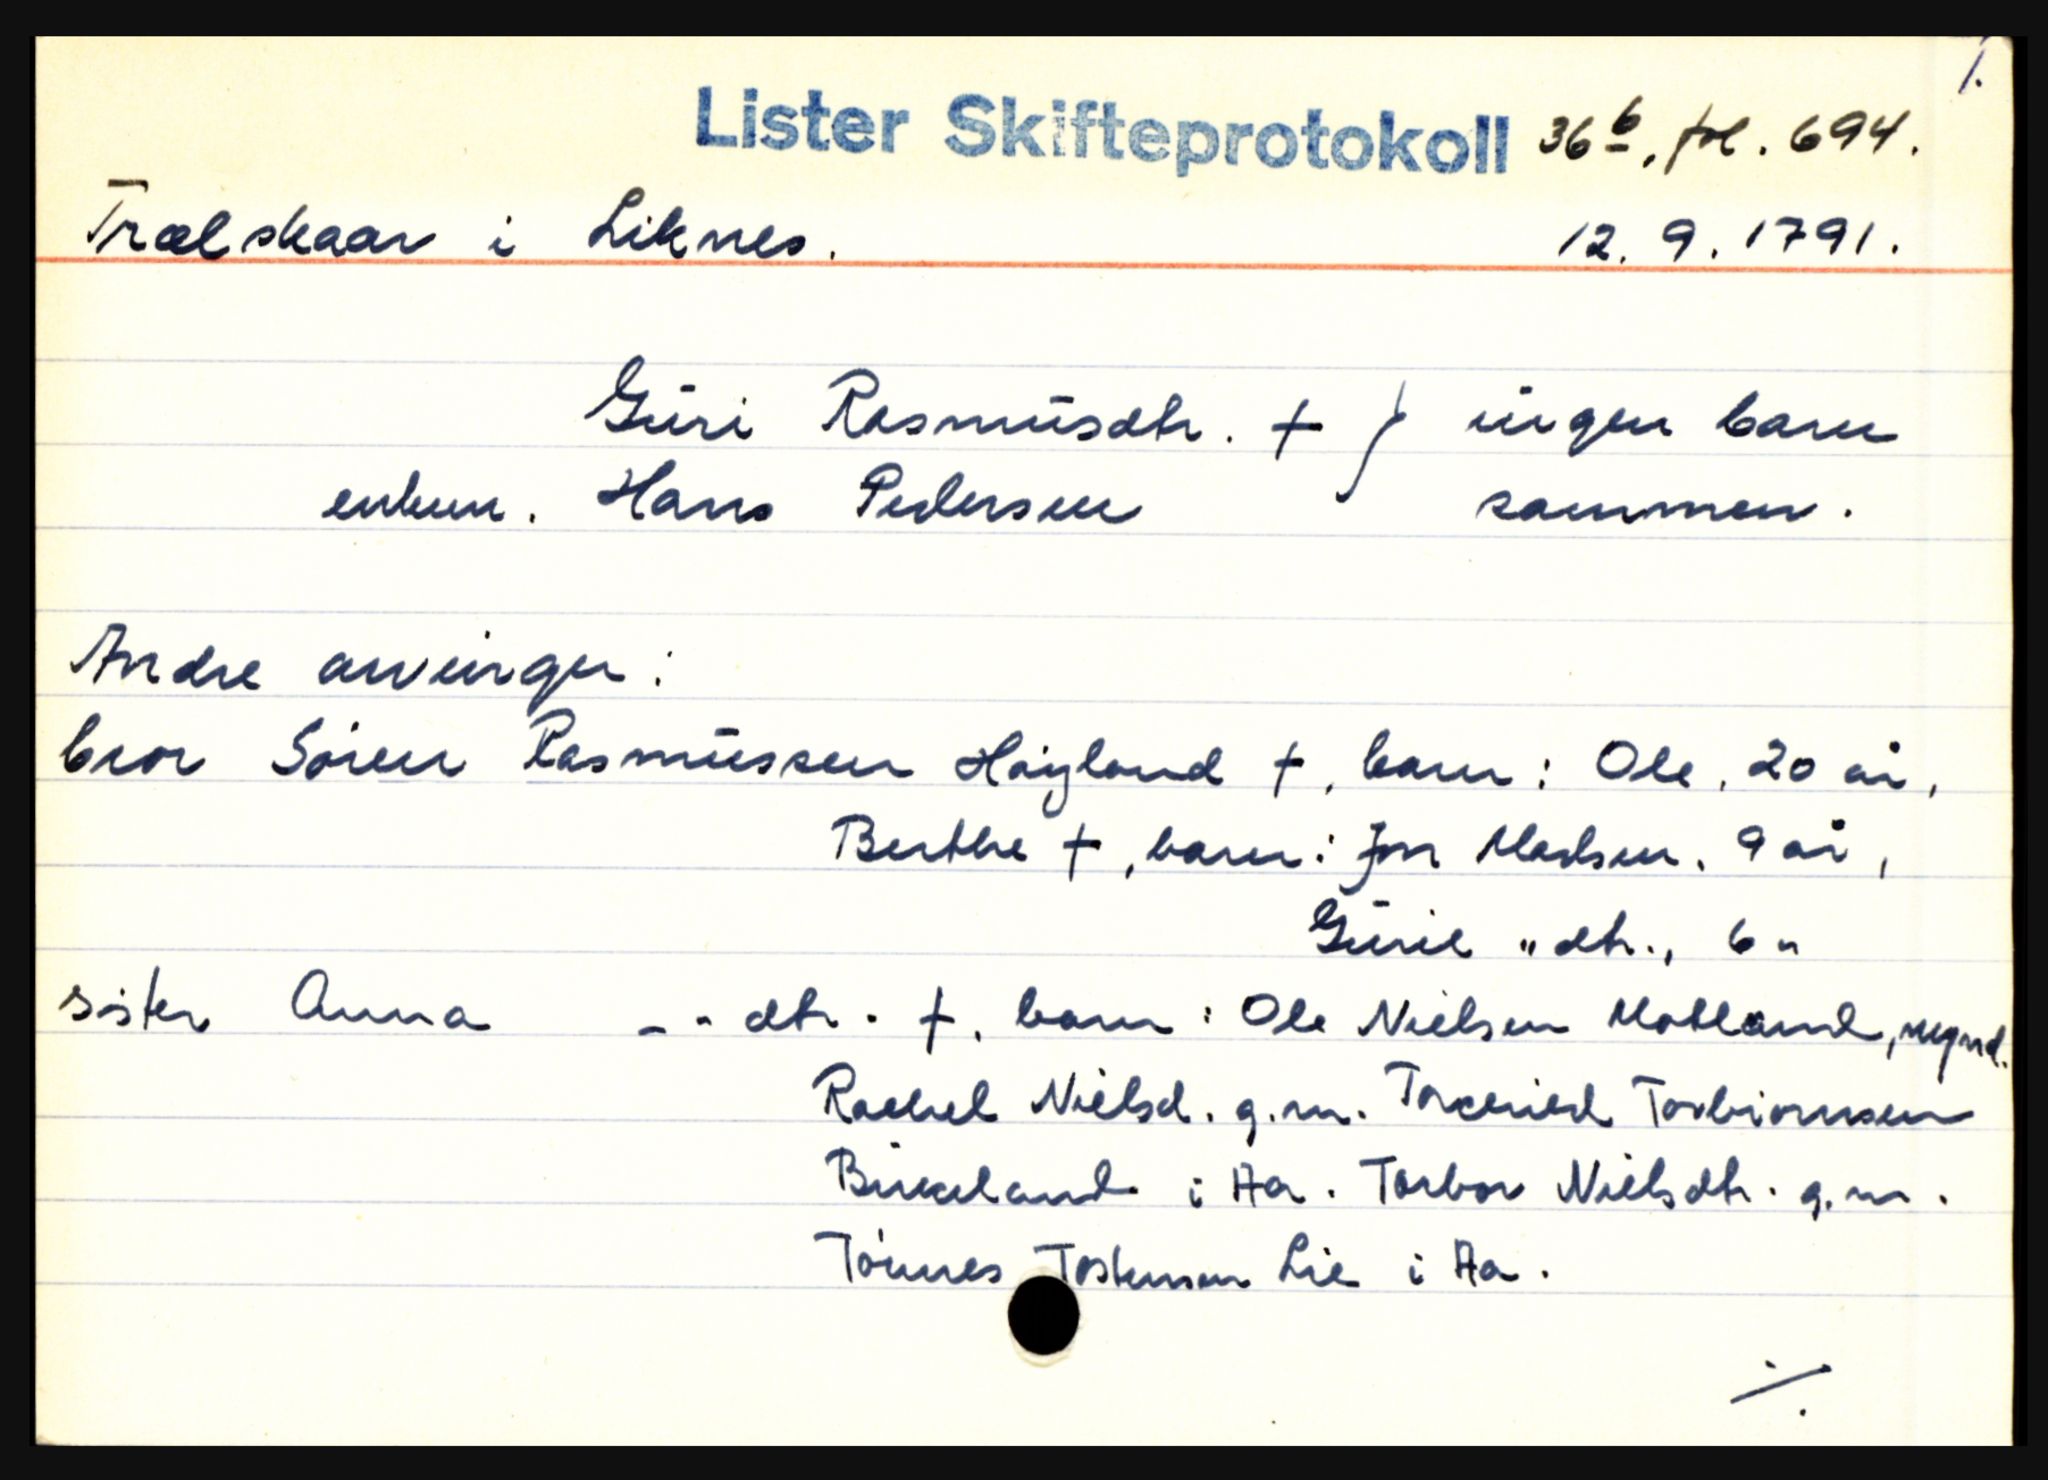 1.
Lister Skifteprotokoll 36b, fol. 694.
Trælskaar i Liknes. 12. 9. 1791.
Guri Rasmusdtr. † } ingen barn
enkem. Hans Pedersen sammen.
Andre arvinger:
bror Sören Rasmussen Höyland †, barn: Ole, 20 år,
Berthe †, barn: Jon Madsen, 9 år,
Gurie " dtr., 6 "
søster Anna - " - dtr. †, barn: Ole Nielsen Motland, mynd.
Rachel Nielsd. g.m. Torkried Torbiornsen
Birkeland i Aa. Torbor Nielsdtr. g.m.
Tönnes Tostensen Lie i Aa.
./.